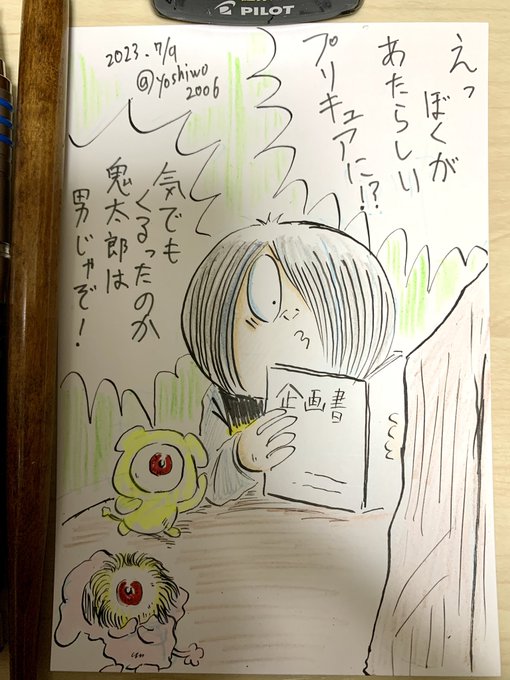 PILOT
2023.7/9
@yoshiwo
2006
えっ
ぼくが
あたらしい
プリキュアに!?
気でも
くるったのか
鬼太郎は
男じゃぞ!
企画書